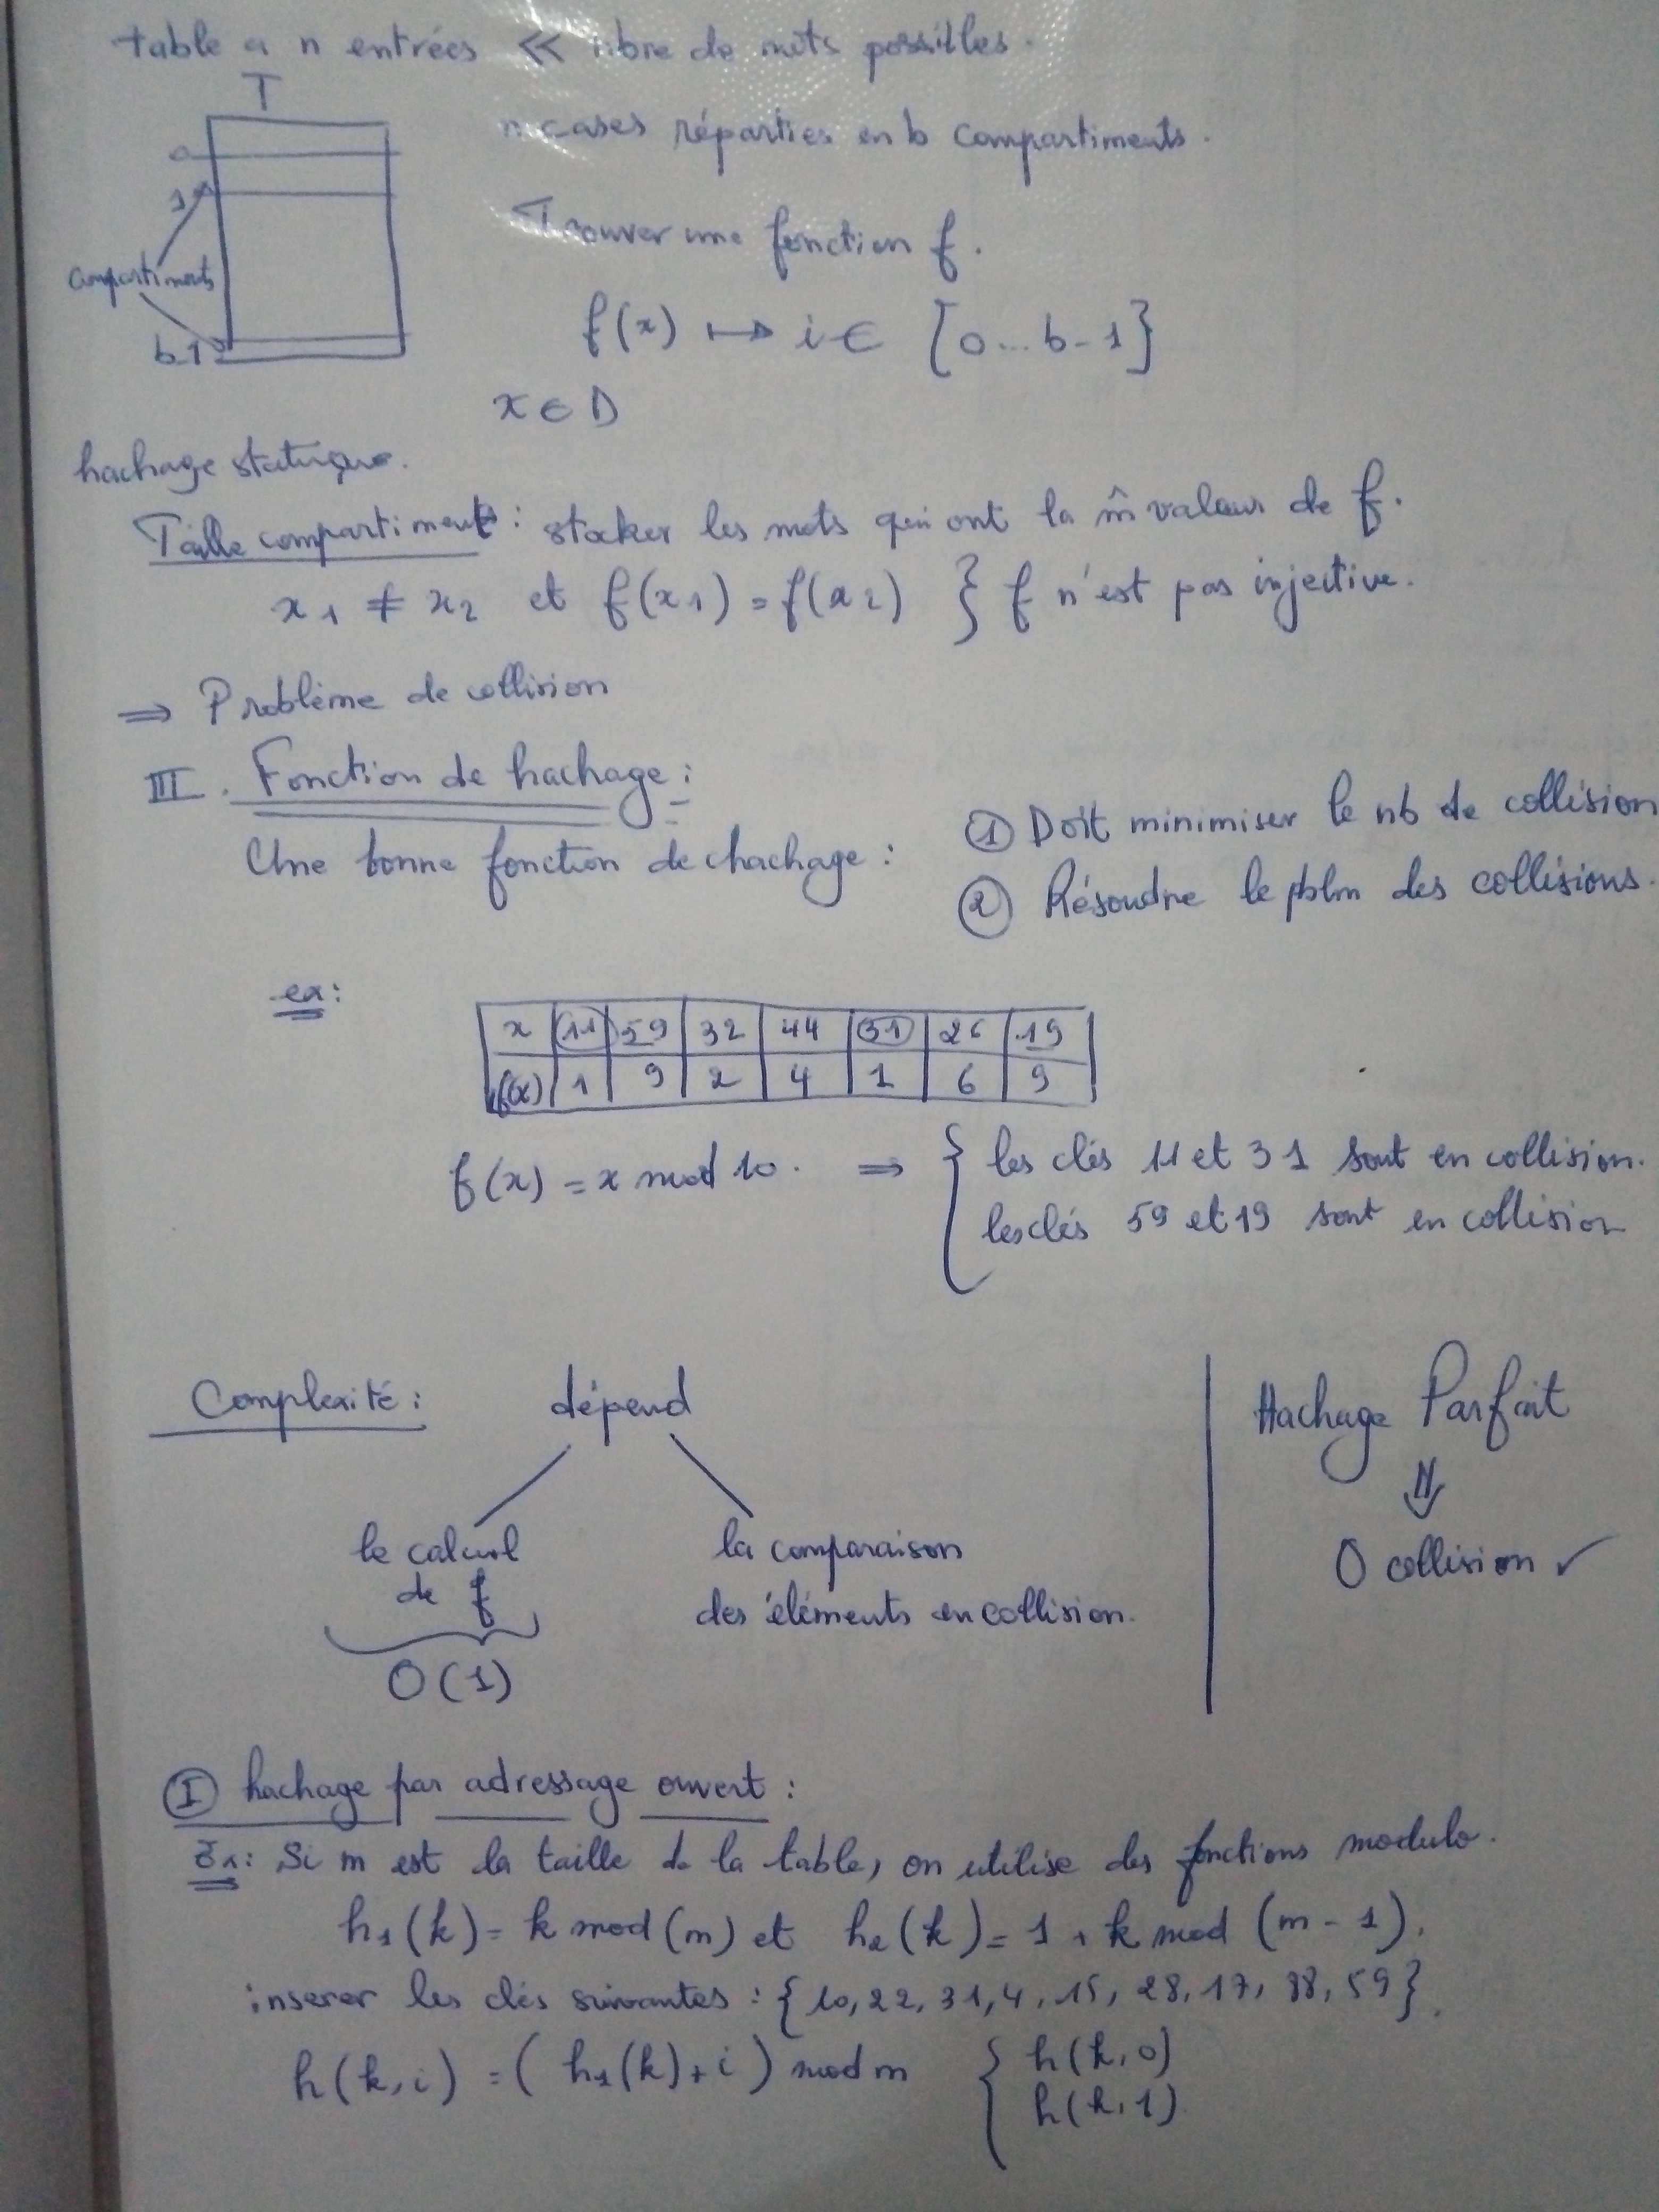 table a n entrées << nbre de mots possibles.
T
n cases réparties en b compartiments.
0
1
Trouver une fonction f.
compartiments
f(x) ↦ i ∈ [0...b-1}
b-1
x ∈ D
hachage statique.
Taille compartiment : stocker les mots qui ont la m̂ valeur de f.
x1 ≠ x2 et f(x1) = f(x2) } f n'est pas injective.
⇒ Problème de collision
III. Fonction de hachage :
Une bonne fonction de hachage : ① Doit minimiser le nb de collision
② Résoudre le pblm des collisions.
ex :
x | 11 | 59 | 32 | 44 | 31 | 26 | 19
f(x) | 1 | 9 | 2 | 4 | 1 | 6 | 9
f(x) = x mod 10. ⇒ { les clés 11 et 31 sont en collision.
les clés 59 et 19 sont en collision
Complexité : dépend
Hachage Parfait
⇓
le calcul de f
la comparaison des éléments en collision.
0 collision ✓
O(1)
① hachage par adressage ouvert :
Ex : Si m est la taille de la table, on utilise des fonctions modulo.
h1(k) = k mod (m) et h2(k) = 1 + k mod (m - 1).
inserer les clés suivantes : {10, 22, 31, 4, 15, 28, 17, 88, 59}.
h(k,i) = (h1(k) + i) mod m { h(k,0)
h(k,1)